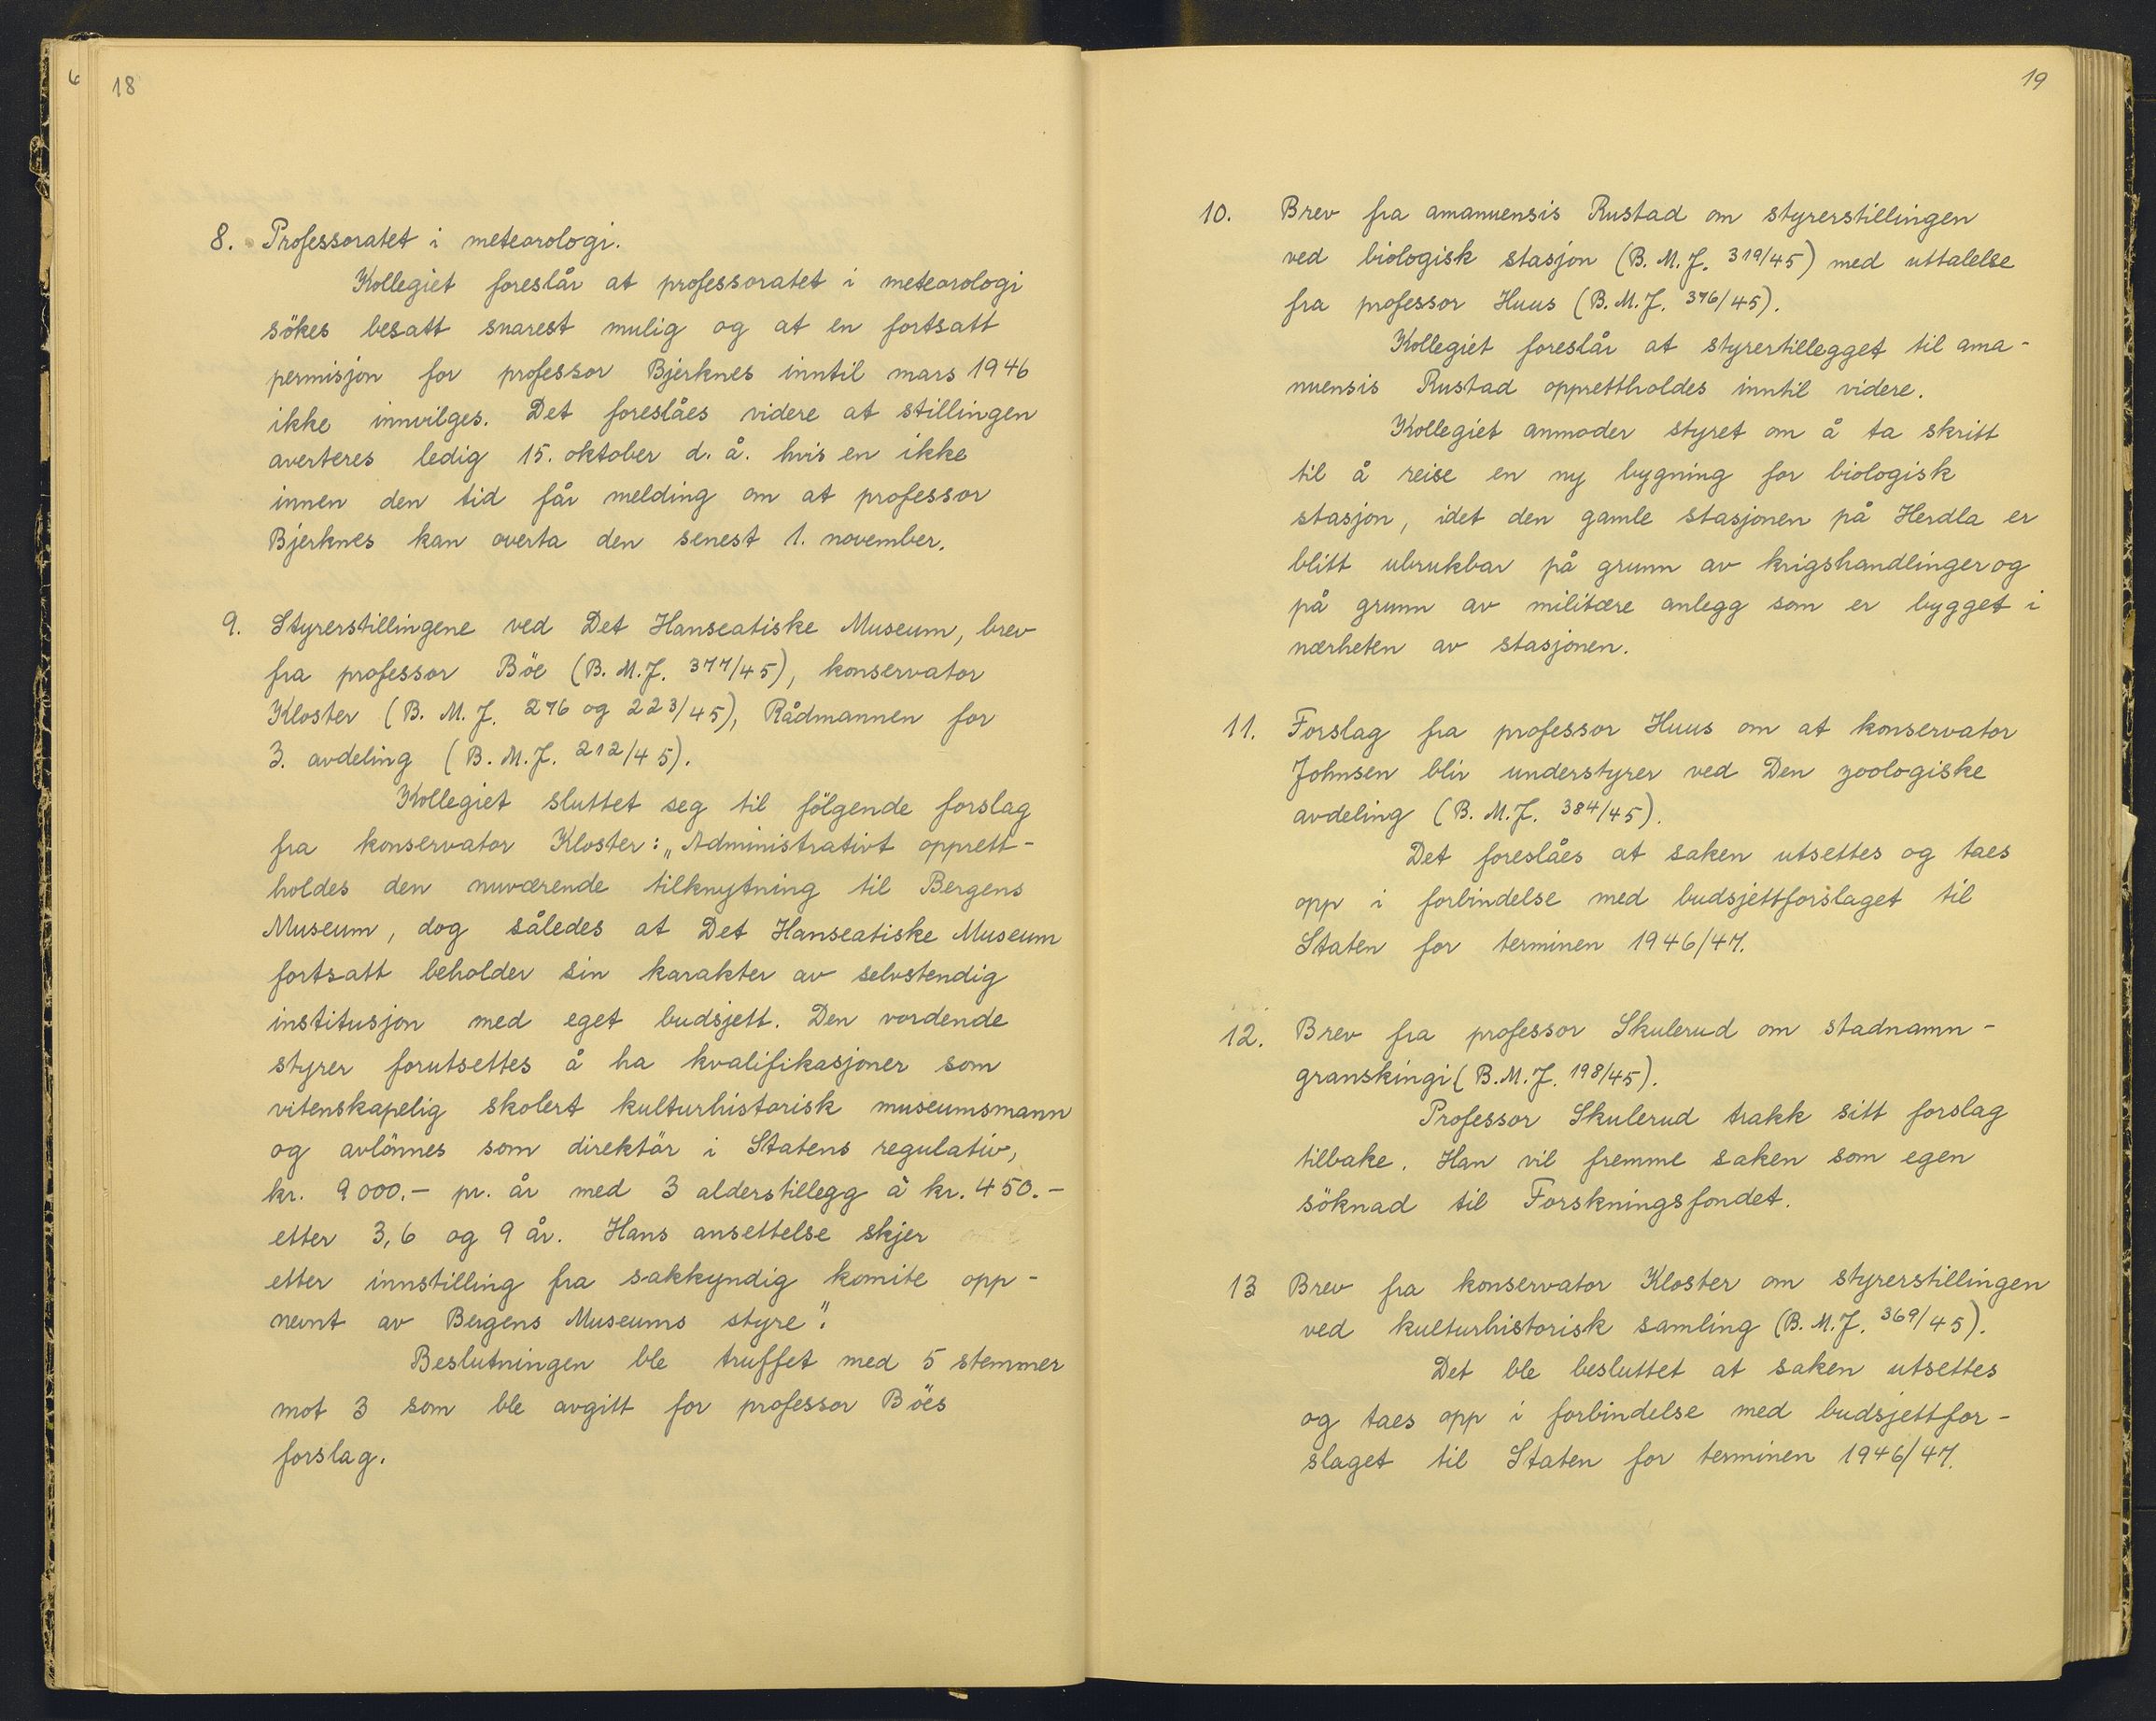 6
18
8. Professoratet i meteorologi.
Kollegiet foreslår at professoratet i meteorologi
sökes besatt snarest mulig og at en fortsatt
permisjon for professor Bjerknes inntil mars 1946
ikke innvilges. Det foreslåes videre at stillingen
averteres ledig 15. oktober d. å. hvis en ikke
innen den tid får melding om at professor
Bjerknes kan overta den senest 1. november.
9. Styrerstillingene ved Det Hanseatiske Museum, brev
fra professor Böe (B. M. J. 377/45), konservator
Kloster (B. M. J. 276 og 223/45), Rådmannen for
3. avdeling (B. M. J. 212/45).
Kollegiet sluttet seg til fölgende forslag
fra konservator Kloster: „Administrativt opprett-
holdes den nuværende tilknytning til Bergens
Museum, dog således at Det Hanseatiske Museum
fortsatt beholder sin karakter av selvstendig
institusjon med eget budsjett. Den vordende
styrer forutsettes å ha kvalifikasjoner som
vitenskapelig skolert kulturhistorisk museumsmann
og avlönnes som direktör i Statens regulativ,
kr. 9000.- pr. år med 3 alderstillegg à kr. 450.-
etter 3, 6 og 9 år. Hans ansettelse skjer
etter innstilling fra sakkyndig komite opp-
nevnt av Bergens Museums styre".
Beslutningen ble truffet med 5 stemmer
mot 3 som ble avgitt for professor Böes
forslag.
19
10. Brev fra amanuensis Rustad om styrerstillingen
ved biologisk stasjon (B. M. J. 319/45) med uttalelse
fra professor Huus (B. M. J. 376/45).
Kollegiet foreslår at styrertillegget til ama-
nuensis Rustad opprettholdes inntil videre.
Kollegiet anmoder styret om å ta skritt
til å reise en ny bygning for biologisk
stasjon, idet den gamle stasjonen på Herdla er
blitt ubrukbar på grunn av krigshandlinger og
på grunn av militære anlegg som er bygget i
nærheten av stasjonen.
11. Forslag fra professor Huus om at konservator
Johnsen blir understyrer ved Den zoologiske
avdeling (B. M. J. 384/45).
Det foreslåes at saken utsettes og taes
opp i forbindelse med budsjettforslaget til
Staten for terminen 1946/47.
12. Brev fra professor Skulerud om stadnamn-
granskingi (B. M. J. 198/45).
Professor Skulerud trakk sitt forslag
tilbake. Han vil fremme saken som egen
söknad til Forskningsfondet.
13 Brev fra konservator Kloster om styrerstillingen
ved kulturhistorisk samling (B. M. J. 369/45).
Det ble besluttet at saken utsettes
og taes opp i forbindelse med budsjettfor-
slaget til Staten for terminen 1946/47.